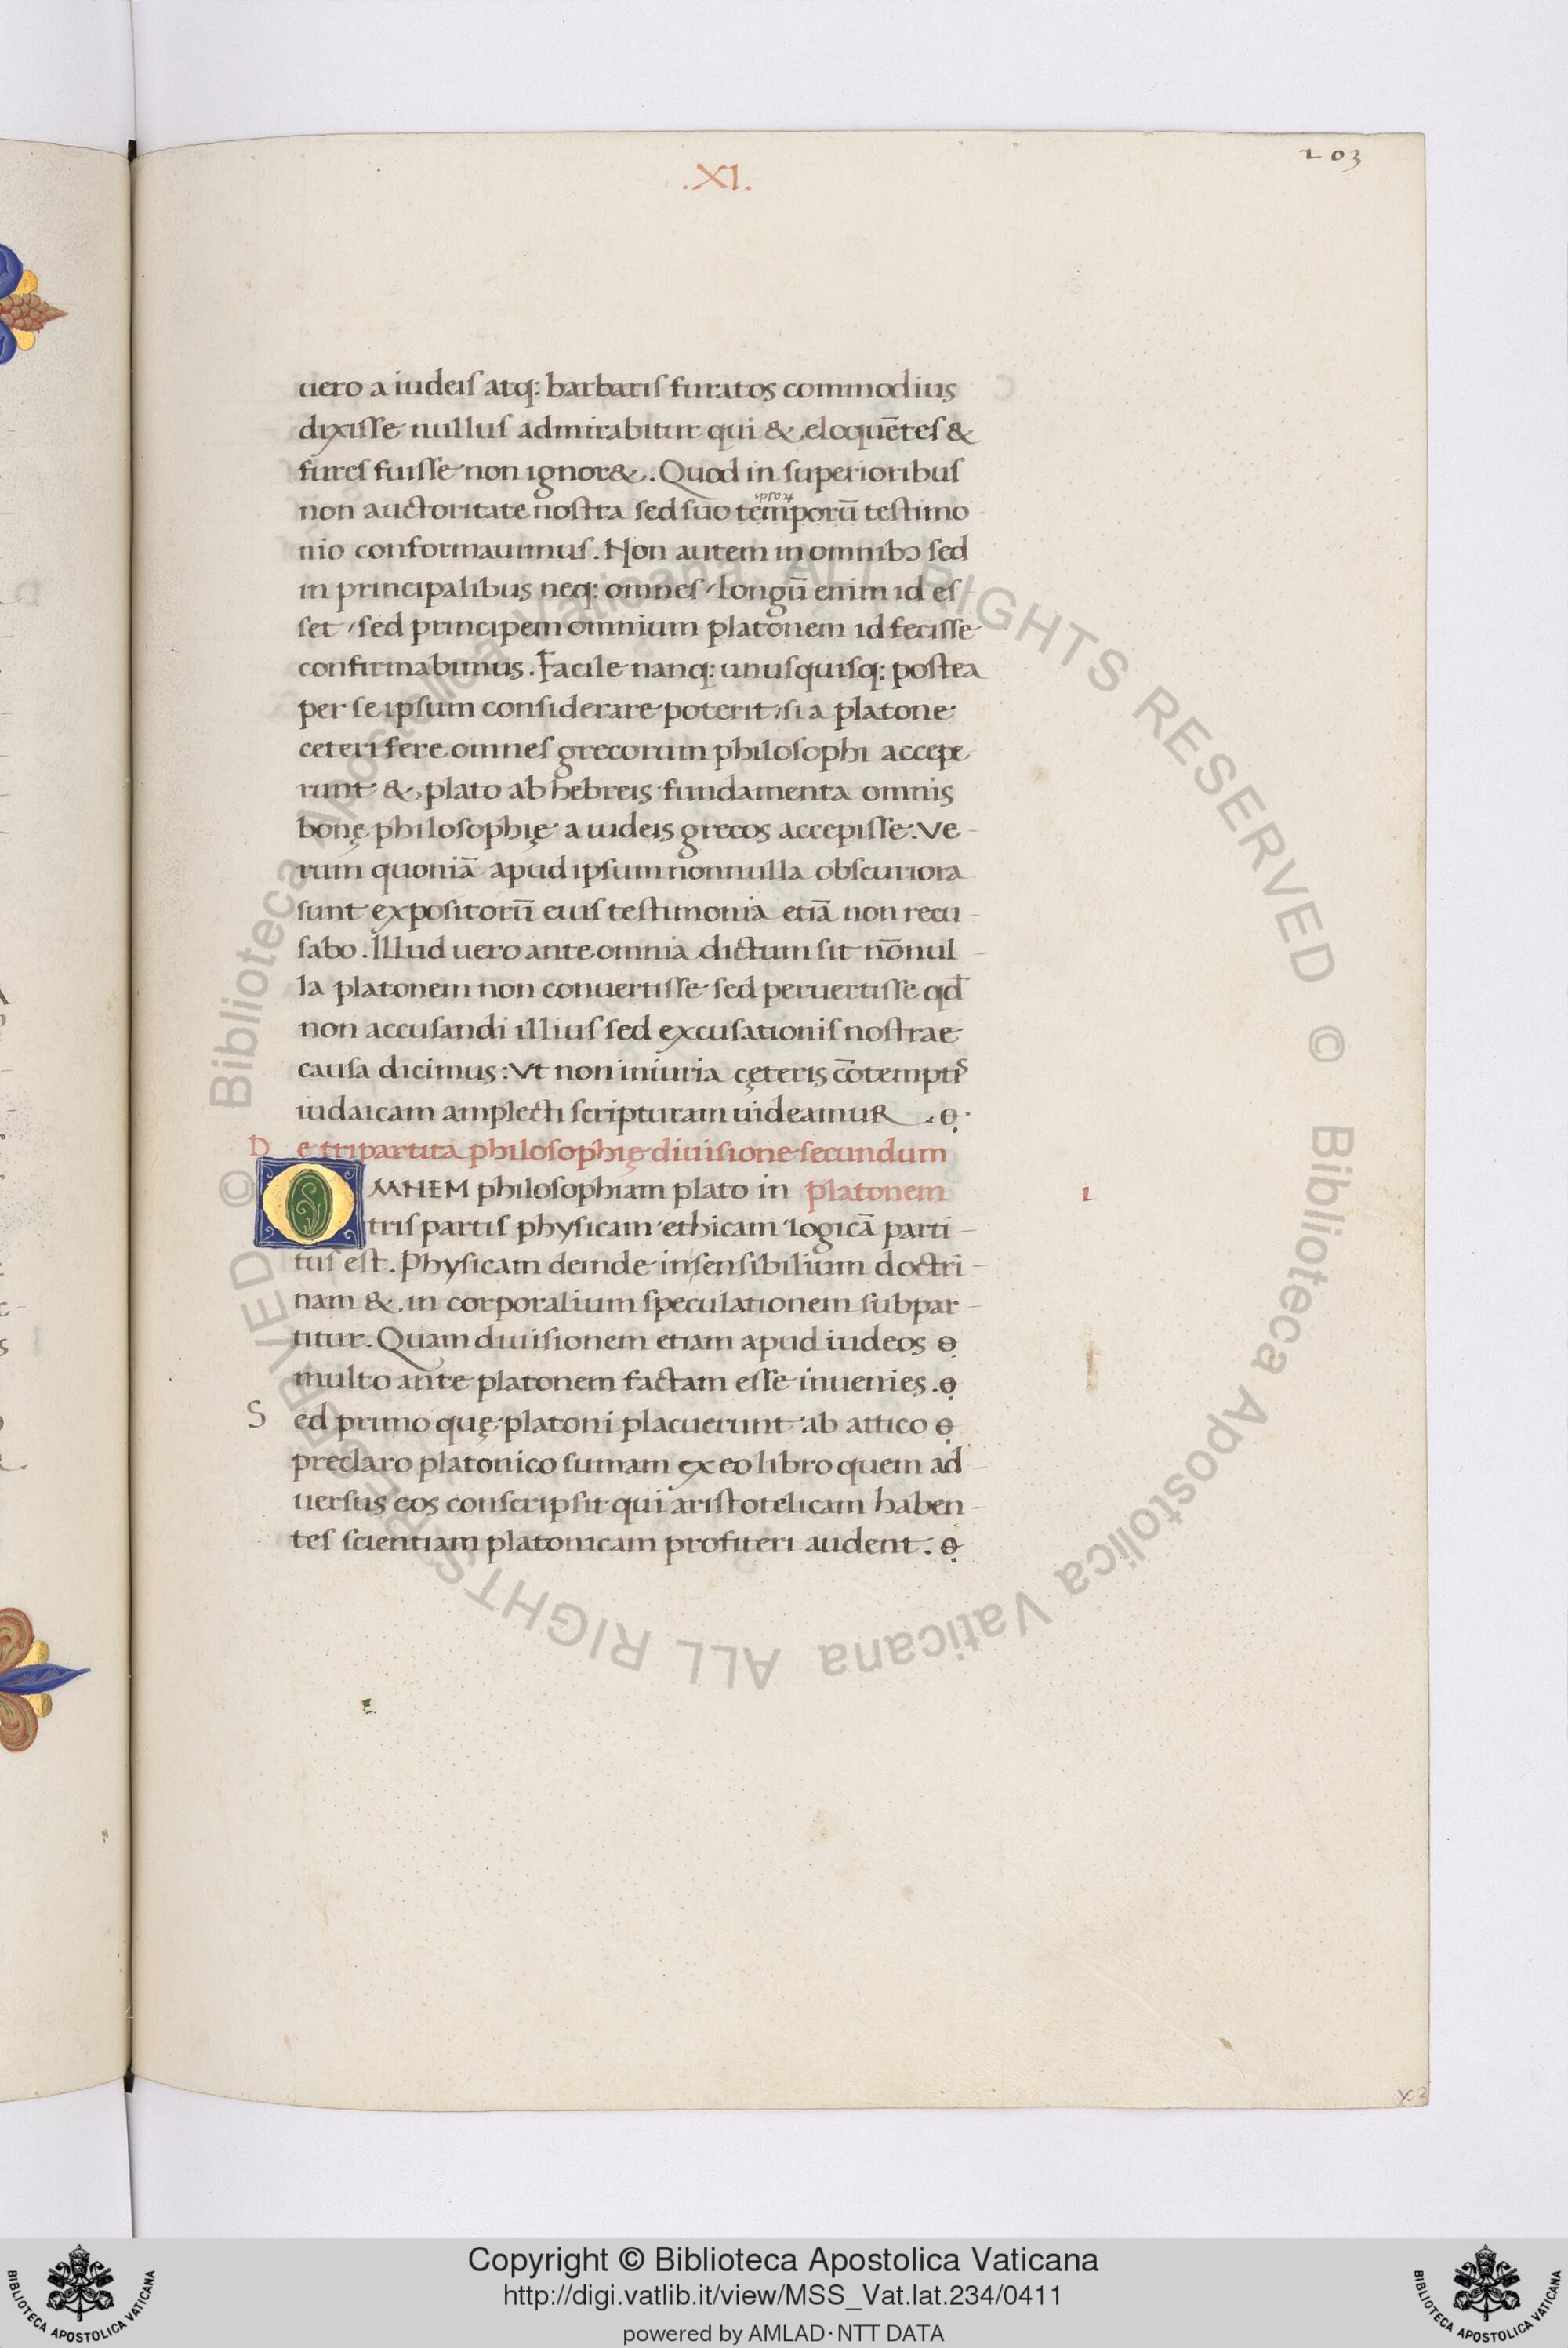 .XI.
203
uero a iudeis atq: barbaris furatos commodius
dixisse nullus admirabitur qui & eloquētes &
fures fuisse non ignor&. Quod in superioribus
non auctoritate nostra sed suo temporū testimo
nio conformauimus. Non autem in omnibɔ sed
in principalibus neq: omnes / longū enim id es
set / sed principem omnium platonem id fecisse
confirmabimus. Facile nanq: unusquisq: postea
per se ipsum considerare poterit / si a platone
ceteri fere omnes grecorum philosophi accepe
runt & plato ab hebreis fundamenta omnis
bonę philosophię a iudeis grecos accepisse. Ve-
rum quoniā apud ipsum nonnulla obscuriora
sunt expositorū eius testimonia etiā non recu-
sabo. Illud uero ante omnia dictum sit nōnul-
la platonem non conuertisse sed peruertisse qđ
non accusandi illius sed excusationis nostrae
causa dicimus: Vt non iniuria cęteris cōtemptis
iudaicam amplecti scripturam uideamuR .
De tripartita philosophię diuisione secundum
OMNEM philosophiam plato in platonem 1
tris partis physicam / ethicam / logicā parti-
tus est. Physicam deinde in sensibilium doctri-
nam & in corporalium speculationem subpar-
titur. Quam diuisionem etiam apud iudeos
multo ante platonem factam esse inuenies.
Sed primo quę platoni placuerunt ab attico
preclaro platonico sumam ex eo libro quem ad-
uersus eos conscripsit qui aristotelicam haben-
tes scientiam platonicam profiteri audent.
Copyright © Biblioteca Apostolica Vaticana
http://digi.vatlib.it/view/MSS_Vat.lat.234/0411
powered by AMLAD·NTT DATA